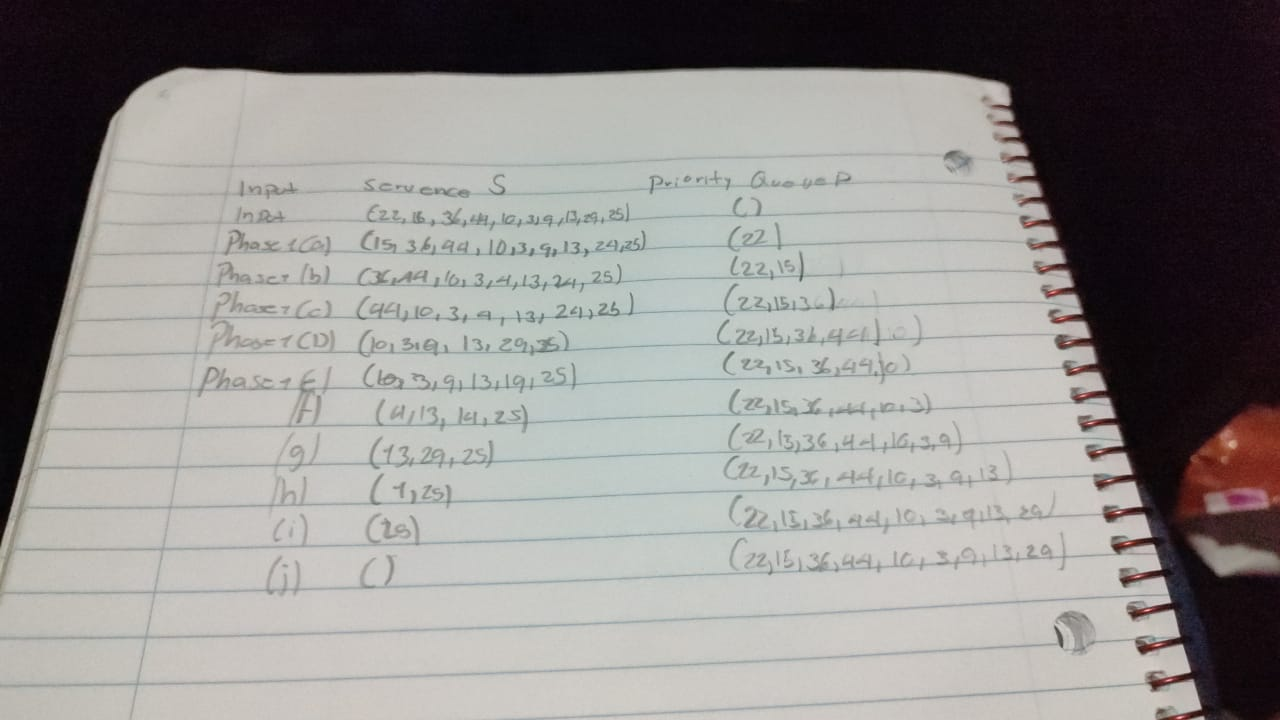 Input servence S Priority Queue P
Input (22, 15, 36, 44, 10, 3, 9, 13, 29, 25) ()
Phase 1 (a) (15, 36, 44, 10, 3, 9, 13, 29, 25) (22)
Phase 1 (b) (36, 44, 10, 3, 9, 13, 29, 25) (22, 15)
Phase 1 (c) (44, 10, 3, 9, 13, 29, 25) (22, 15, 36)
Phase 1 (D) (10, 3, 9, 13, 29, 25) (22, 15, 36, 44)
Phase 1 E) (10, 3, 9, 13, 19, 25) (22, 15, 36, 44, 10)
(F) (9, 13, 14, 25) (22, 15, 36, 44, 10, 3)
(g) (13, 29, 25) (22, 15, 36, 44, 10, 3, 9)
(h) (1, 25) (22, 15, 36, 44, 10, 3, 9, 13)
(i) (25) (22, 15, 36, 44, 10, 3, 9, 13, 29)
(j) () (22, 15, 36, 44, 10, 3, 9, 13, 29)